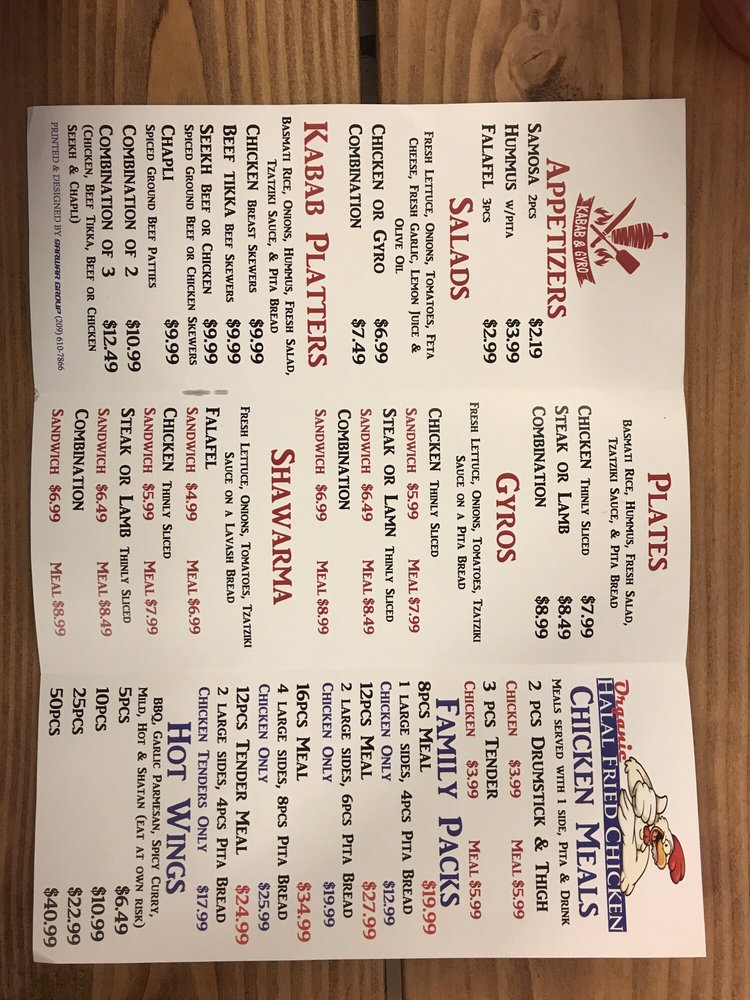 KABAB & GYRO
APPETIZERS
SAMOSA 2PCS $2.19
HUMMUS W/PITA $3.99
FALAFEL 3PCS $2.99
SALADS
FRESH LETTUCE, ONIONS, TOMATOES, FETA
CHEESE, FRESH GARLIC, LEMON JUICE &
OLIVE OIL
CHICKEN OR GYRO $6.99
COMBINATION $7.49
KABAB PLATTERS
BASMATI RICE, ONIONS, HUMMUS, FRESH SALAD,
TZATZIKI SAUCE, & PITA BREAD
CHICKEN BREAST SKEWERS $9.99
BEEF TIKKA BEEF SKEWERS $9.99
SEEKH BEEF OR CHICKEN $9.99
SPICED GROUND BEEF OR CHICKEN SKEWERS
CHAPLI $9.99
SPICED GROUND BEEF PATTIES
COMBINATION OF 2 $10.99
COMBINATION OF 3 $12.49
(CHICKEN, BEEF TIKKA, BEEF OR CHICKEN
SEEKH & CHAPLI)
PRINTED & DESIGNED BY SARWARI GROUP (209) 610-7866
PLATES
BASMATI RICE, HUMMUS, FRESH SALAD,
TZATZIKI SAUCE, & PITA BREAD
CHICKEN THINLY SLICED $7.99
STEAK OR LAMB $8.49
COMBINATION $8.99
GYROS
FRESH LETTUCE, ONIONS, TOMATOES, TZATZIKI
SAUCE ON A PITA BREAD
CHICKEN THINLY SLICED
SANDWICH $5.99 MEAL $7.99
STEAK OR LAMN THINLY SLICED
SANDWICH $6.49 MEAL $8.49
COMBINATION
SANDWICH $6.99 MEAL $8.99
SHAWARMA
FRESH LETTUCE, ONIONS, TOMATOES, TZATZIKI
SAUCE ON A LAVASH BREAD
FALAFEL
SANDWICH $4.99 MEAL $6.99
CHICKEN THINLY SLICED
SANDWICH $5.99 MEAL $7.99
STEAK OR LAMB THINLY SLICED
SANDWICH $6.49 MEAL $8.49
COMBINATION
SANDWICH $6.99 MEAL $8.99
Organic
HALAL FRIED CHICKEN
CHICKEN MEALS
MEALS SERVED WITH 1 SIDE, PITA & DRINK
2 PCS DRUMSTICK & THIGH
CHICKEN $3.99 MEAL $5.99
3 PCS TENDER
CHICKEN $3.99 MEAL $5.99
FAMILY PACKS
8PCS MEAL $19.99
1 LARGE SIDES, 4PCS PITA BREAD
CHICKEN ONLY $12.99
12PCS MEAL $27.99
2 LARGE SIDES, 6PCS PITA BREAD
CHICKEN ONLY $19.99
16PCS MEAL $34.99
4 LARGE SIDES, 8PCS PITA BREAD
CHICKEN ONLY $25.99
12PCS TENDER MEAL $24.99
2 LARGE SIDES, 4PCS PITA BREAD
CHICKEN TENDERS ONLY $17.99
HOT WINGS
BBQ, GARLIC PARMESAN, SPICY CURRY,
MILD, HOT & SHATAN (EAT AT OWN RISK)
5PCS $6.49
10PCS $10.99
25PCS $22.99
50PCS $40.99